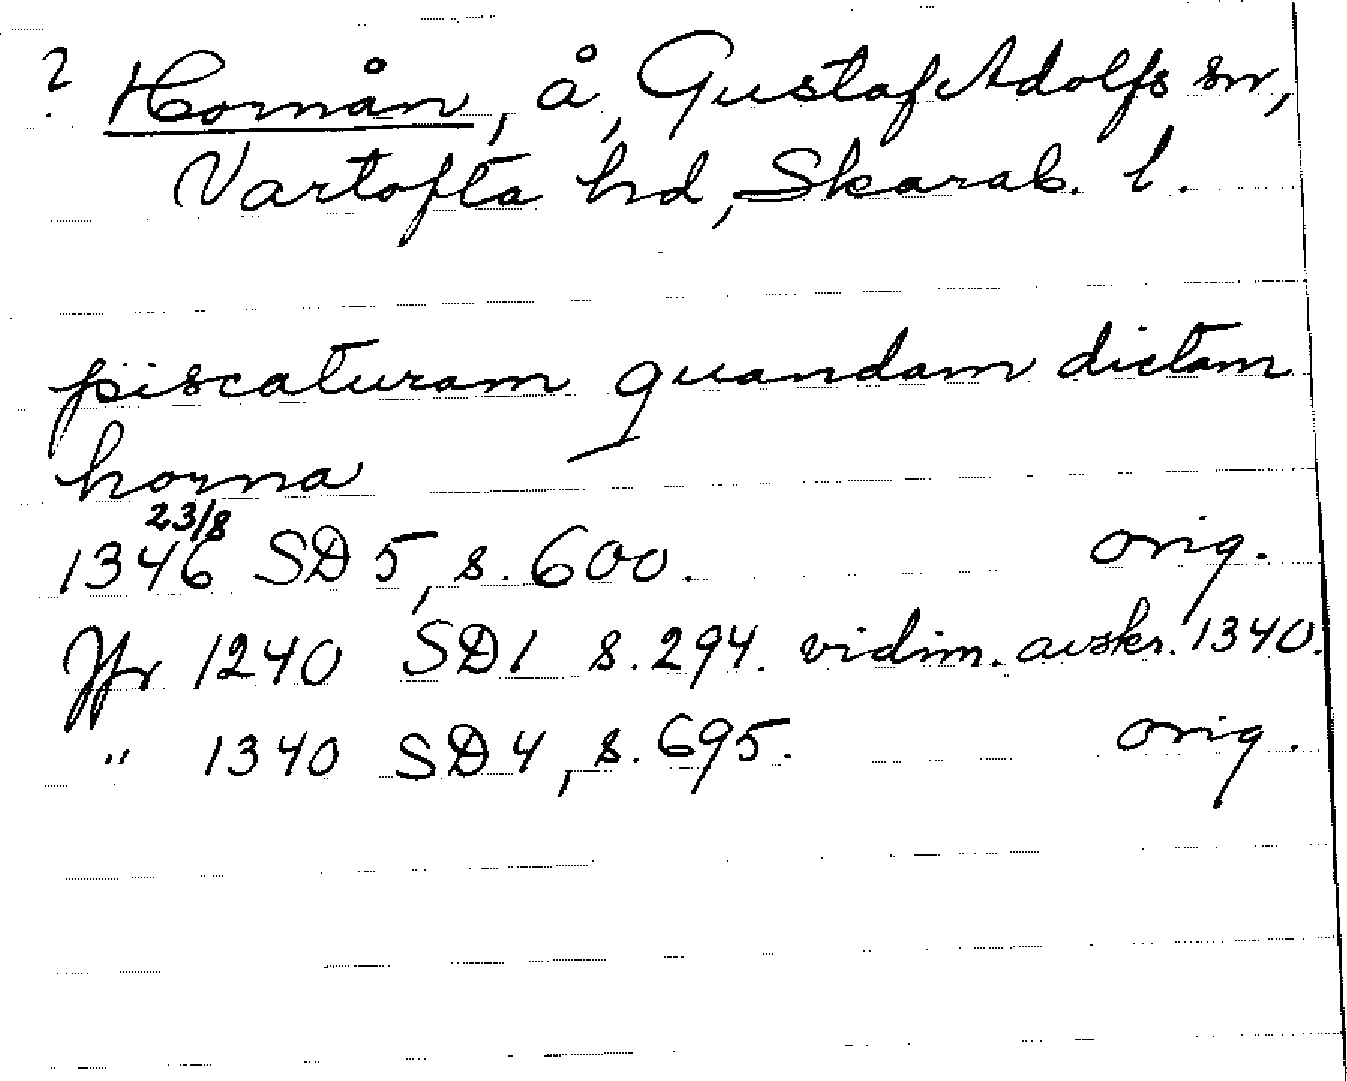 ? Hornån, å, Gustaf Adolfs sn,
Vartofta hd, Skarab. l.
piscaturam quandam dictam
horna
23/8
1346 SD 5, s. 600. orig.
Jfr 1240 SD 1 s. 294. vidim. avskr. 1340.
" 1340 SD 4, s. 695. orig.